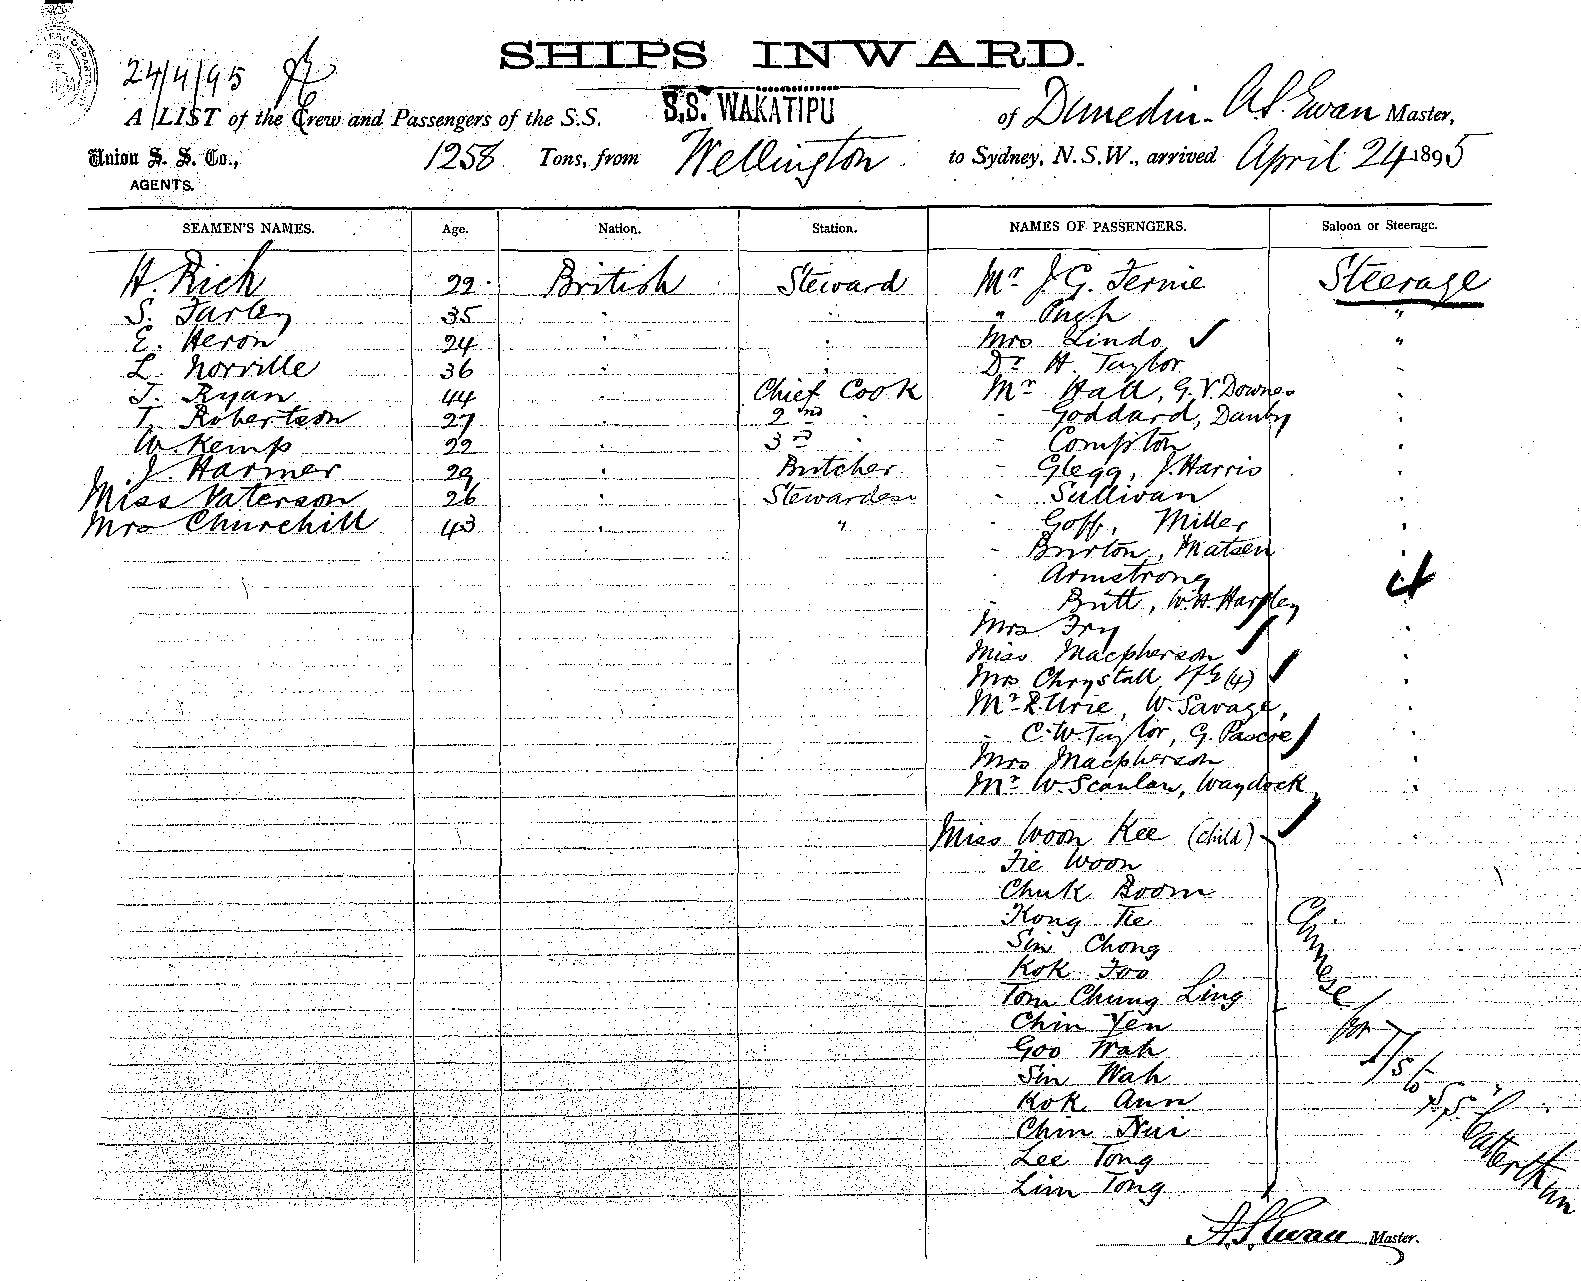 SHIPS INWARD.
24/4/95
A LIST of the Crew and Passengers of the S.S. S.S. WAKATIPU of Dunedin A S Ewan Master,
Union S. S. Co., AGENTS. 1258 Tons, from Wellington to Sydney, N.S.W., arrived April 24 1895
SEAMEN'S NAMES. Age. Nation. Station. NAMES OF PASSENGERS. Saloon or Steerage.
H. Rich 22 British Steward Mr J. G. Fernie Steerage
S. Farley 35 " " " Pugh "
E. Heron 24 " " Mrs Lindo ✓ "
L. Norville 36 " " Dr H. Taylor "
T. Ryan 44 " Chief Cook Mr Hall, G. V. Downes "
T. Robertson 27 " 2nd " " Goddard, Danby "
W. Kemp 22 " 3rd " " Compton "
J. Harmer 29 " Butcher " Glegg, J. Harris "
Miss Paterson 26 " Stewardess " Sullivan "
Mrs Churchill 43 " " " Goff, Miller "
" Burton, Matsen "
" Armstrong
" Britt, W. H. Hartley "
Mrs Fry "
Miss Macpherson ✓ "
Mrs Chrystall (4) ✓ "
Mr R. Urie, W. Savage, "
" C. W. Taylor, G. Pascoe "
Mrs Macpherson "
Mr W. Scanlan, Waydock "
Miss Woon Kee (child) ✓ "
Fie Woon
Chuk Boom
Kong Tie
Sin Chong
Kok Foo
Tom Chung Ling
Chin Yen
Goo Wah
Sin Wah
Kok Ann
Chin Nui
Lee Tong
Lim Tong
Chinese for T/S to S.S. Catterthun
A. S. Ewan Master.